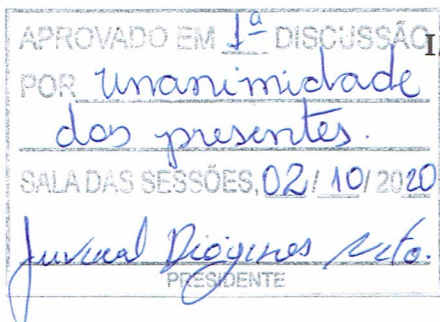 APROVADO EM 1ª DISCUSSÃO
POR Unanimidade
dos presentes.
SALA DAS SESSÕES, 02/10/2020
Juvenal Diógenes Neto.
PRESIDENTE